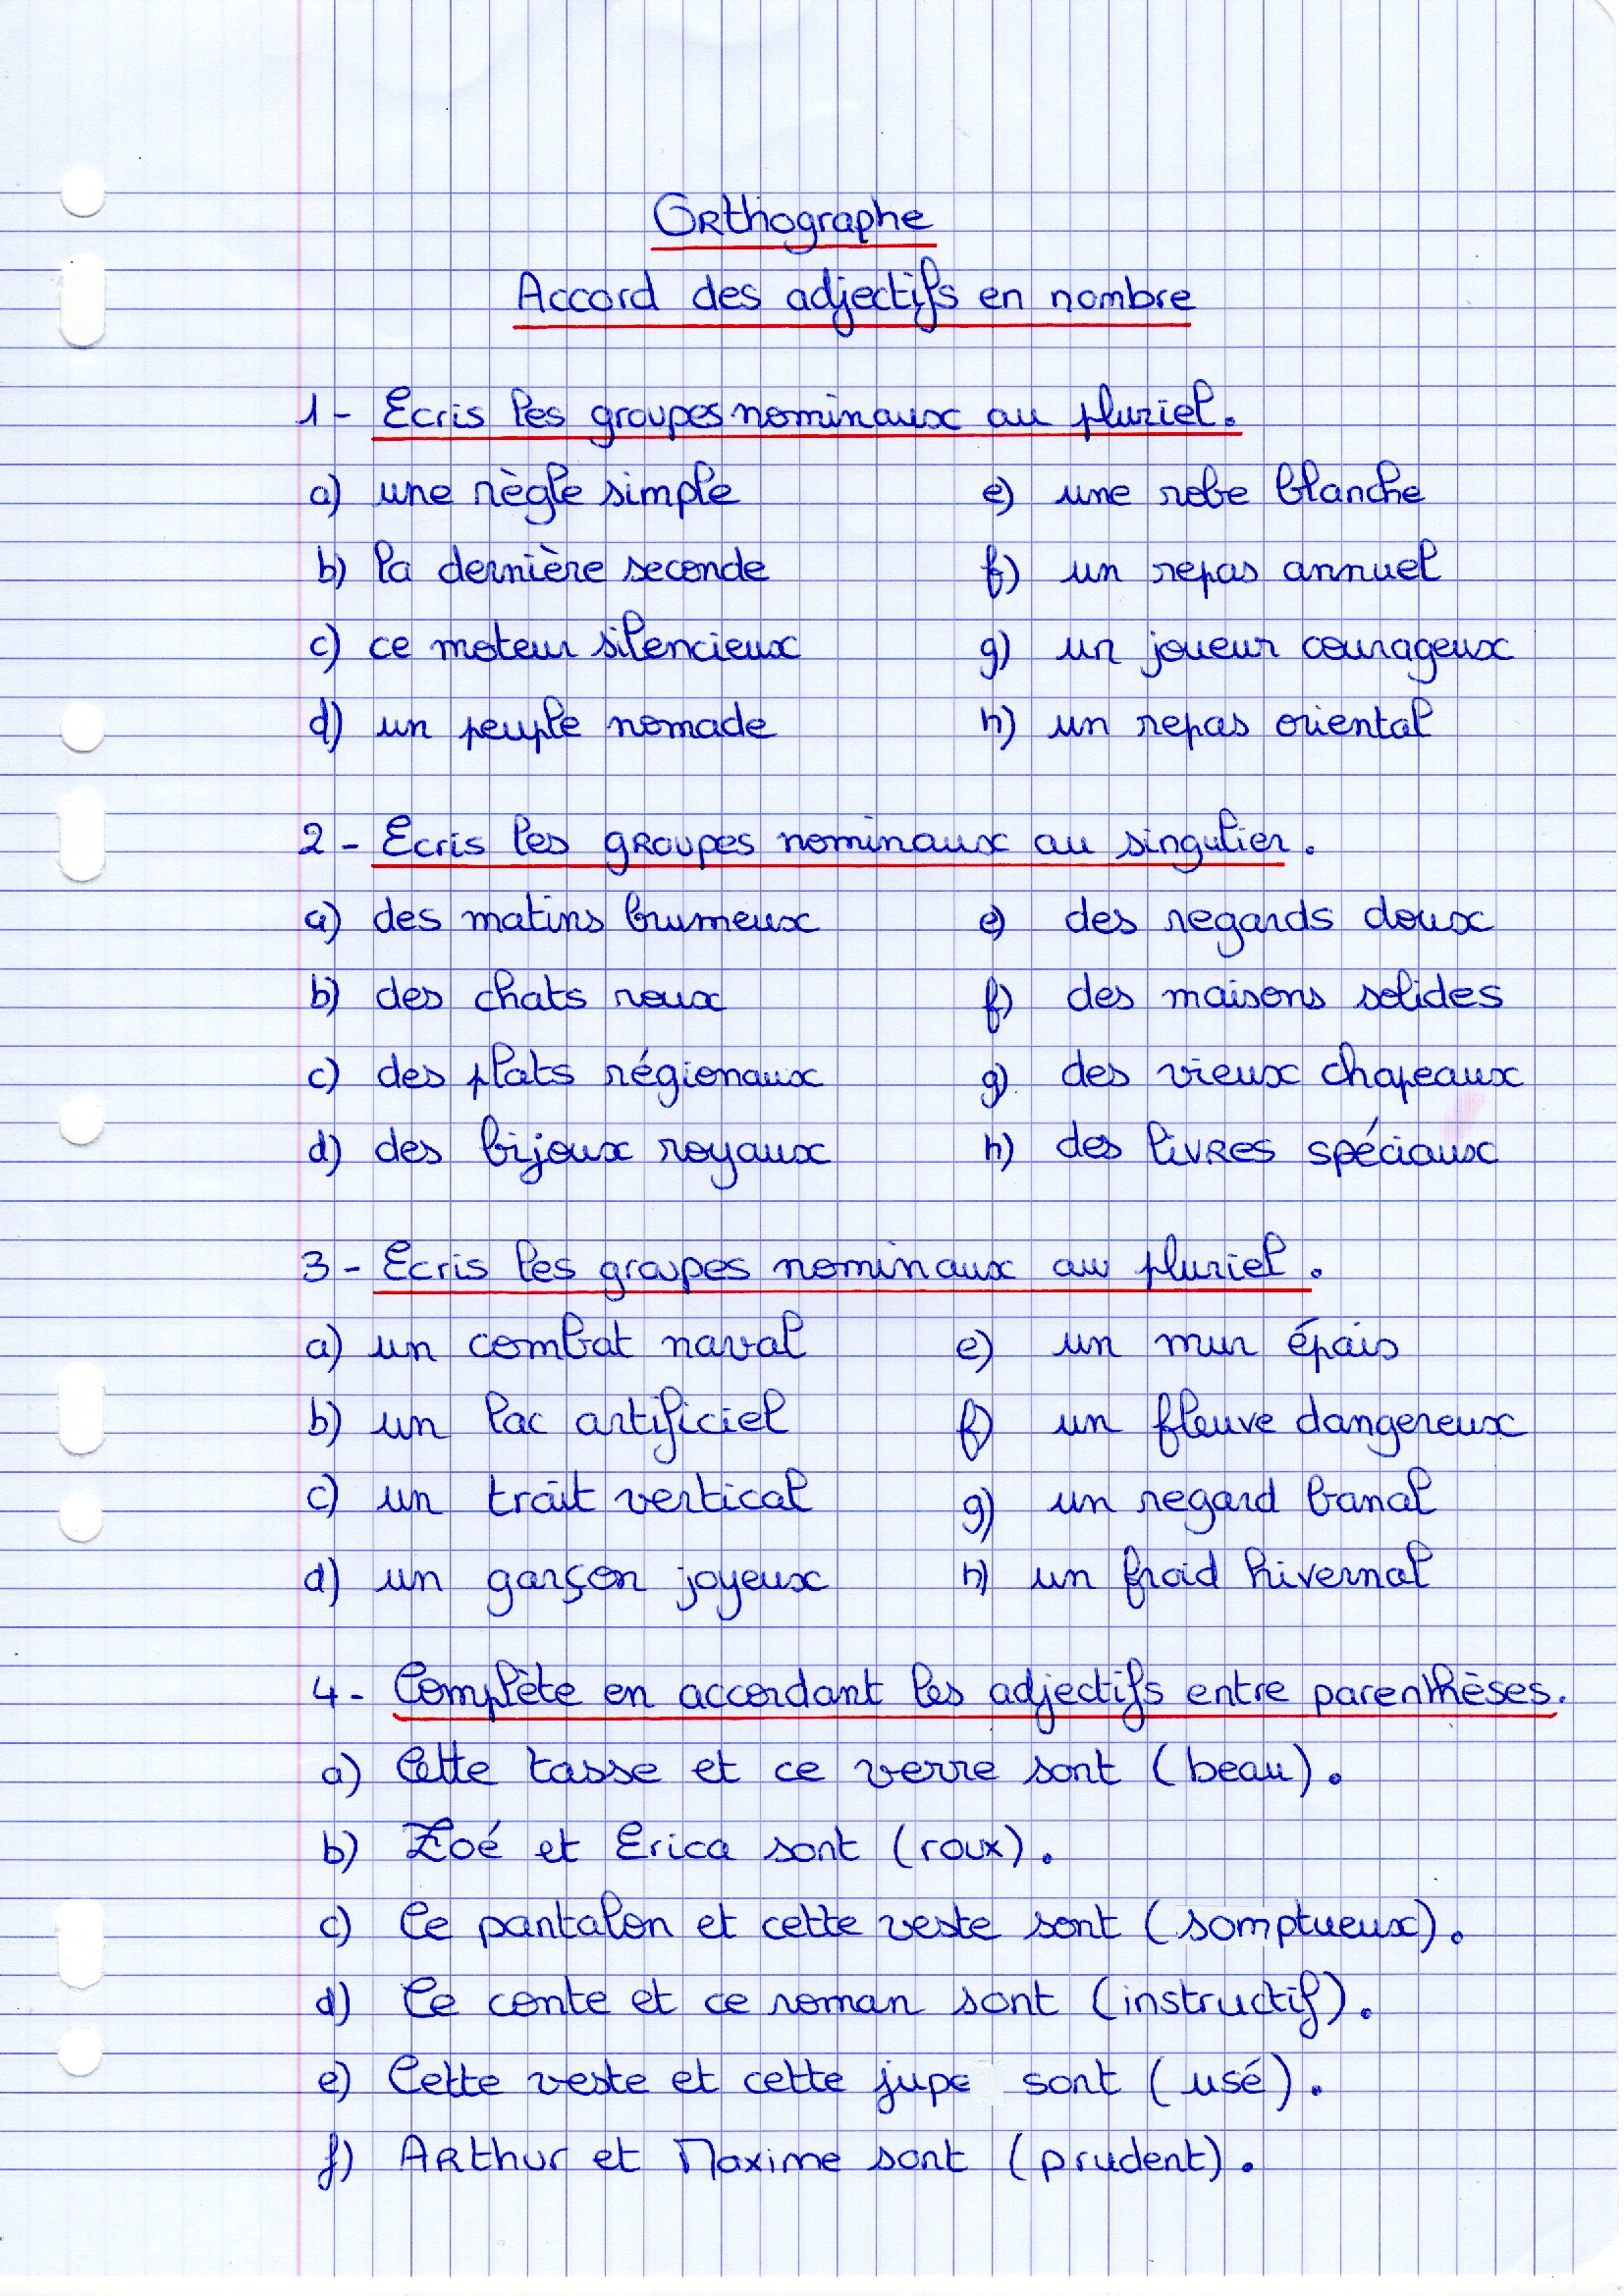 Orthographe
Accord des adjectifs en nombre
1- Ecris les groupes nominaux au pluriel.
a) une règle simple e) une robe blanche
b) la dernière seconde f) un repas annuel
c) ce moteur silencieux g) un joueur courageux
d) un peuple nomade h) un repas oriental
2- Ecris les groupes nominaux au singulier.
a) des matins brumeux e) des regards doux
b) des chats roux f) des maisons solides
c) des plats régionaux g) des vieux chapeaux
d) des bijoux royaux h) des livres spéciaux
3- Ecris les groupes nominaux au pluriel.
a) un combat naval e) un mur épais
b) un lac artificiel f) un fleuve dangereux
c) un trait vertical g) un regard banal
d) un garçon joyeux h) un froid hivernal
4- Complète en accordant les adjectifs entre parenthèses.
a) Cette tasse et ce verre sont (beau).
b) Zoé et Erica sont (roux).
c) Ce pantalon et cette veste sont (somptueux).
d) Ce conte et ce roman sont (instructif).
e) Cette veste et cette jupe sont (usé).
f) Arthur et Maxime sont (prudent).